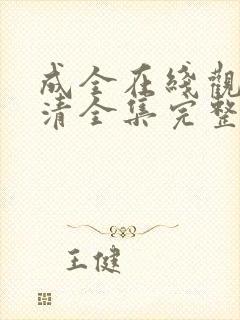 成全在綫觀
清全集完整
王健